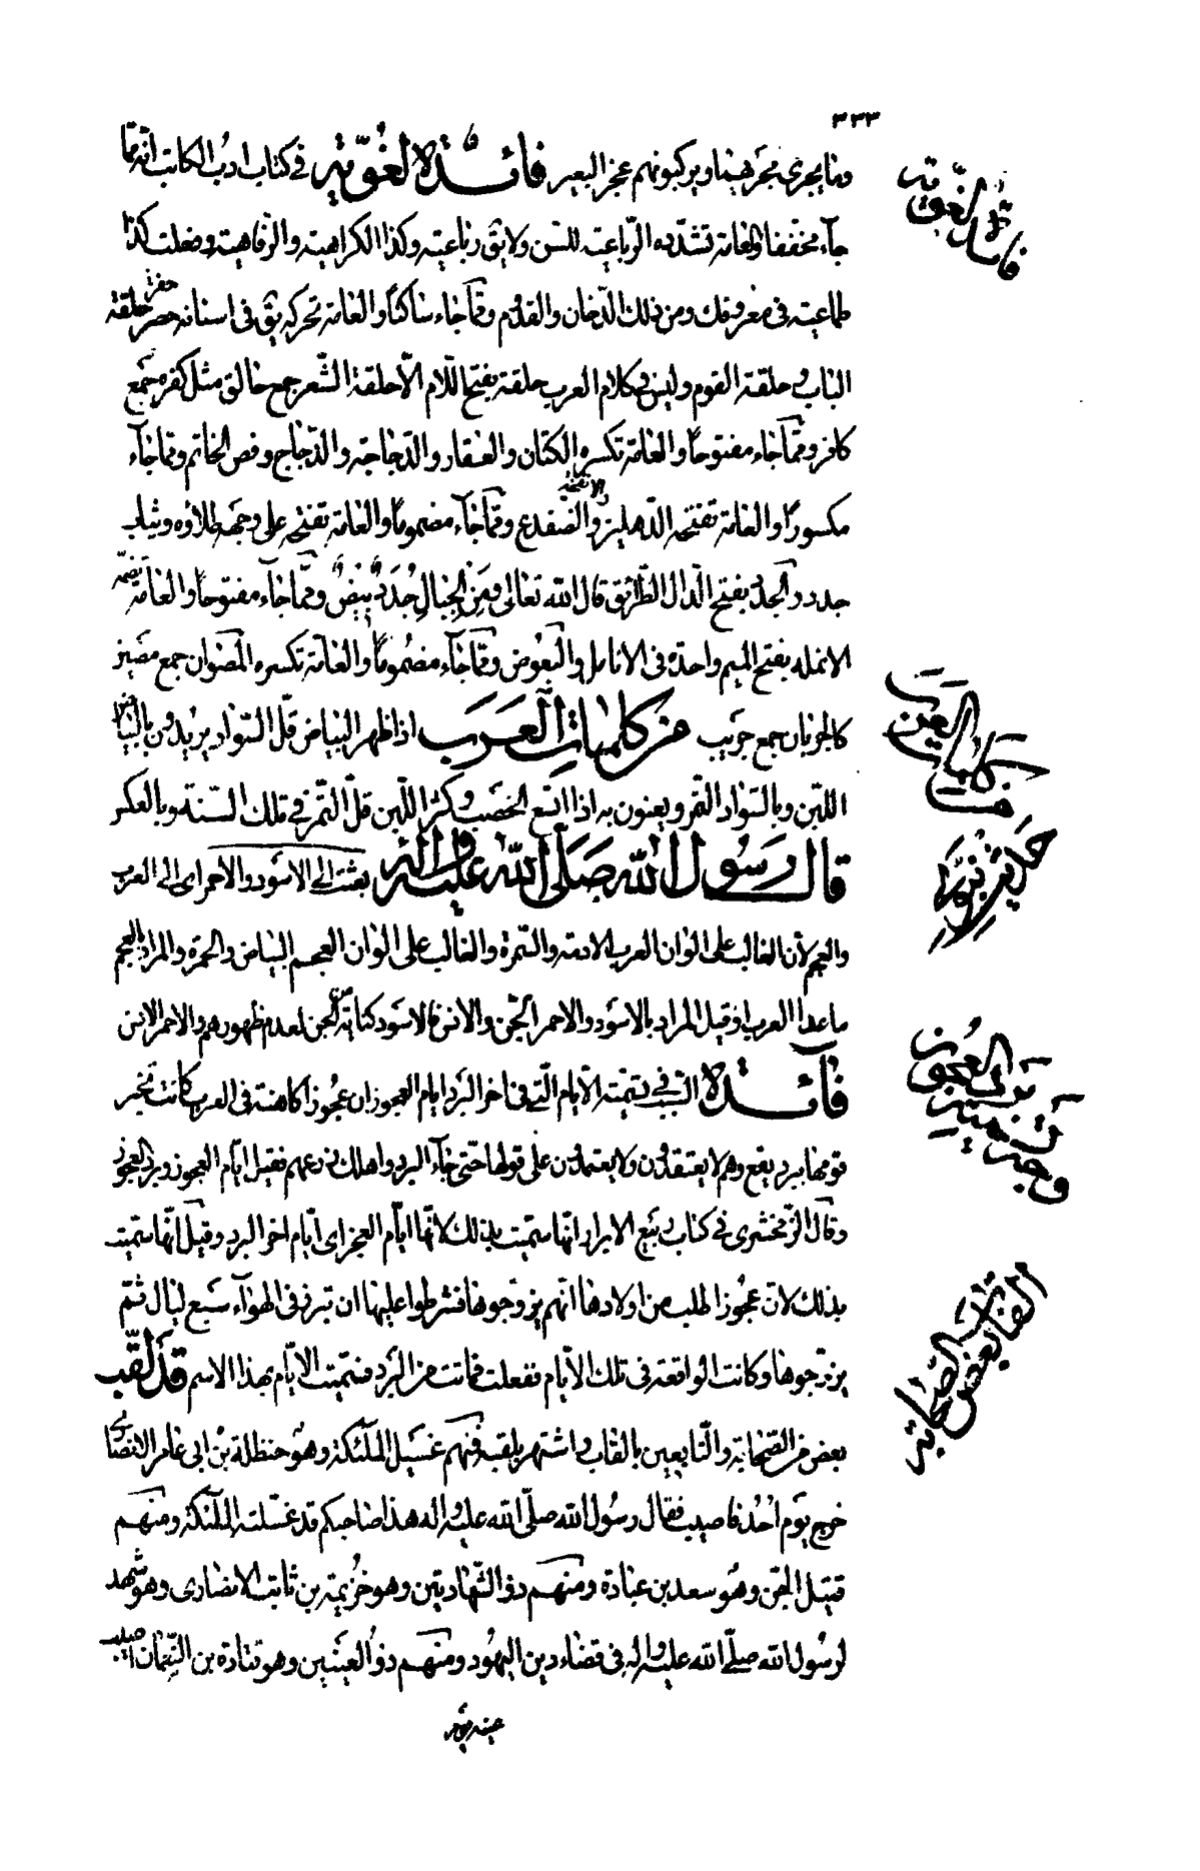 ٣٣٣
وما يجرى مجريهما ويركبونهم عجز البعير فائدة لغوية في كتاب ادب الكاتب انه مما
جآء مخففا والعامة تشدده الرباعية للسن ولا يق رباعية وكذا الكراهية والرفاهية وفعلت كذا
طماعية فى معروفك ومن ذلك الدخان والقدوم ومما جاء ساكنا والعامة تحركه يق فى اسنانه حفر وحلقة
الباب وحلقة القوم وليس فى كلام العرب حلقة بفتح اللام الا حلقة الشعر جمع حالق مثل كفرة جمع
كافر ومما جاء مفتوحا والعامة تكسره الكتان والعقار والدجاجة والدجاج وفص الخاتم ومما جآء
مكسورا والعامة تفتحه الدهليز والانفحة والضفدع ومما جآء مضموما والعامة تفتحه على وجهه طلاوه وثياب
جدد والجدد بفتح الدال الطرائق قال الله تعالى ومن الجبال جدد بيض ومما جآء مفتوحا والعامة تضمه
الانمله بفتح الميم واحدة فى الانامل والبعوض ومما جآء مضموما والعامة تكسره المصران جمع مصير
كالجربان جمع جريب من كلمات العرب اذا ظهر البياض قل السواد يريدون بالبياض
اللبن وبالسواد التمر ويعنون به اذا اتسع الخصب وكثر اللبن قل التمر في تلك السنة وبالعكس
قال رسول الله صلى الله عليه واله بعثت الى الاسود والاحمر اى الى العرب
والعجم لأن الغالب على الوان العرب الادمة والسمرة والغالب على الوان العجم البياض والحمرة والمراد بالعجم
ما عدا العرب او قيل المراد بالاسود والاحمر الجن والانس فالاسود كناية عن الجن لعدم ظهورهم والاحمر الانس
فآئدة السبب في تسمية الأيام التي فى اخر البرد ايام العجوز ان عجوزا كاهنة فى العرب كانت تخبر
قومها ببرد يقع وهم لا يعتقدون ولا يعتمدون على قولها حتى جآء البرد واهلك زرعهم فقيل ايام العجوز وبرد العجوز
وقال الزمخشرى في كتاب ربيع الابرار انها سميت بذلك لانها ايام العجز اى ايام اخر البرد وقيل انها سميت
بذلك لان عجوزا طلب من اولادها انهم يزوجوها فشرطوا عليها ان تبرز فى الهوآء سبع ليال ثم
يزوجوها وكانت الواقعة فى تلك الأيام ففعلت فماتت من البرد فسميت الايام بهذا الاسم قد لقب
بعض من الصحابة والتابعين بالقاب واشتهر بلقبه فمنهم غسيل الملئكة وهو حنظلة بن ابى عامر الانصارى
خرج يوم احد فاصيب فقال رسول الله صلى الله عليه واله هذا صاحبكم قد غسلته الملآئكة ومنهم
قتيل الجن وهو سعد بن عبادة ومنهم ذو الشهادتين وهو خزيمة بن ثابت الانصارى وهو شهد
لرسول الله صلى الله عليه واله فى قضاء دين اليهود ومنهم ذو العينين وهو قتادة بن النعمان اصيب
عينه يوم
فائدة لغوية
من كلمات العرب
حديث نبوى
برد العجوز
وجه تسميته
القاب بعض الصحابة